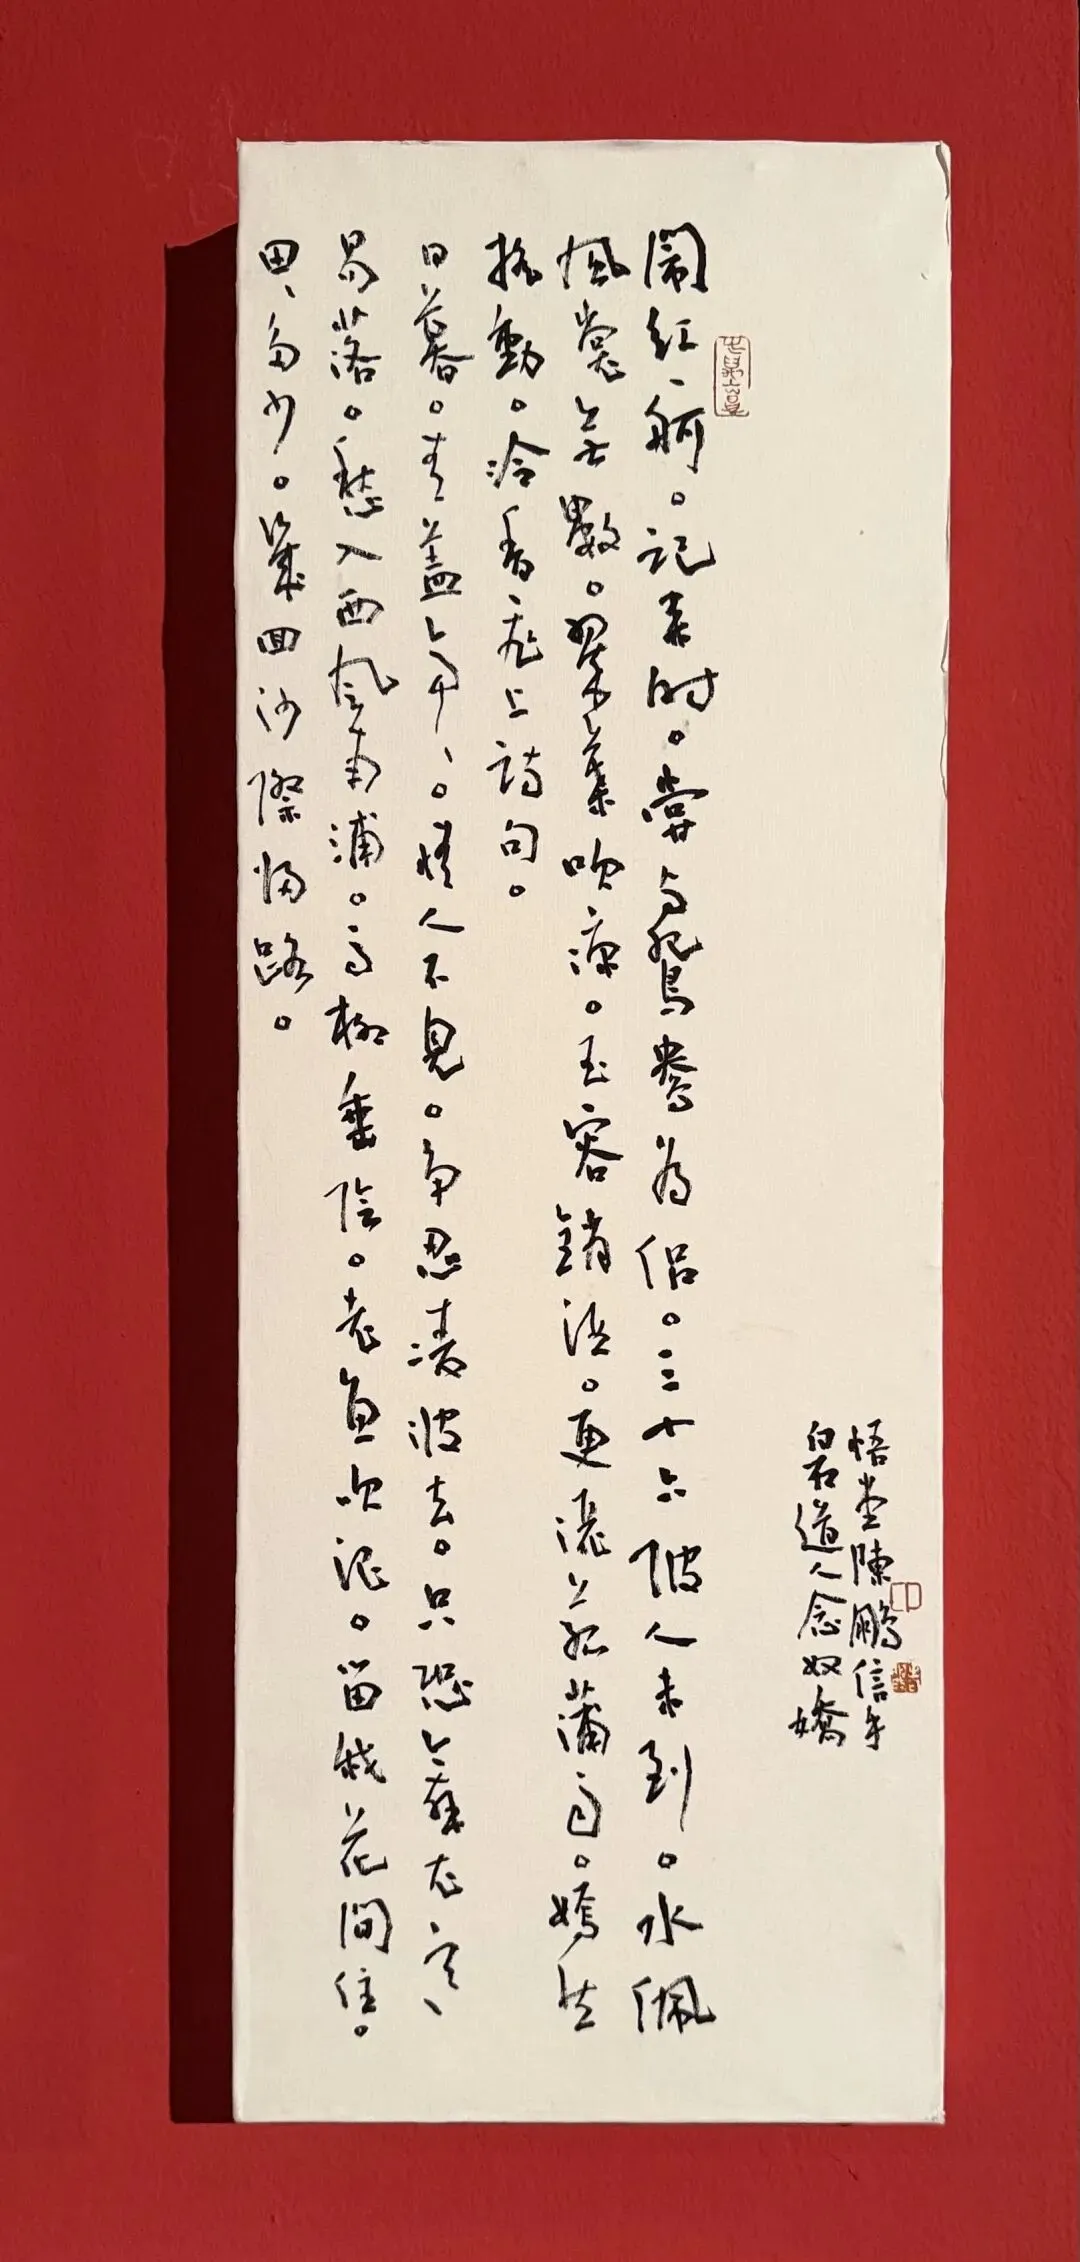 悟堂陳鵬信手
白石道人念奴嬌
鬧紅一舸。記来时。嘗与鴛鴦為侶。三十六陂人未到。水佩
風裳无數。翠葉吹凉。玉容銷酒。更灑菰蒲雨。嫣然
摇動。冷香飛上詩句。
日暮。青蓋亭、。情人不見。争忍凌波去。只恐舞衣寒、
易落。愁入西風南浦。高柳垂陰。老魚吹浪。留我花間住。
田、多少。幾回沙際歸路。